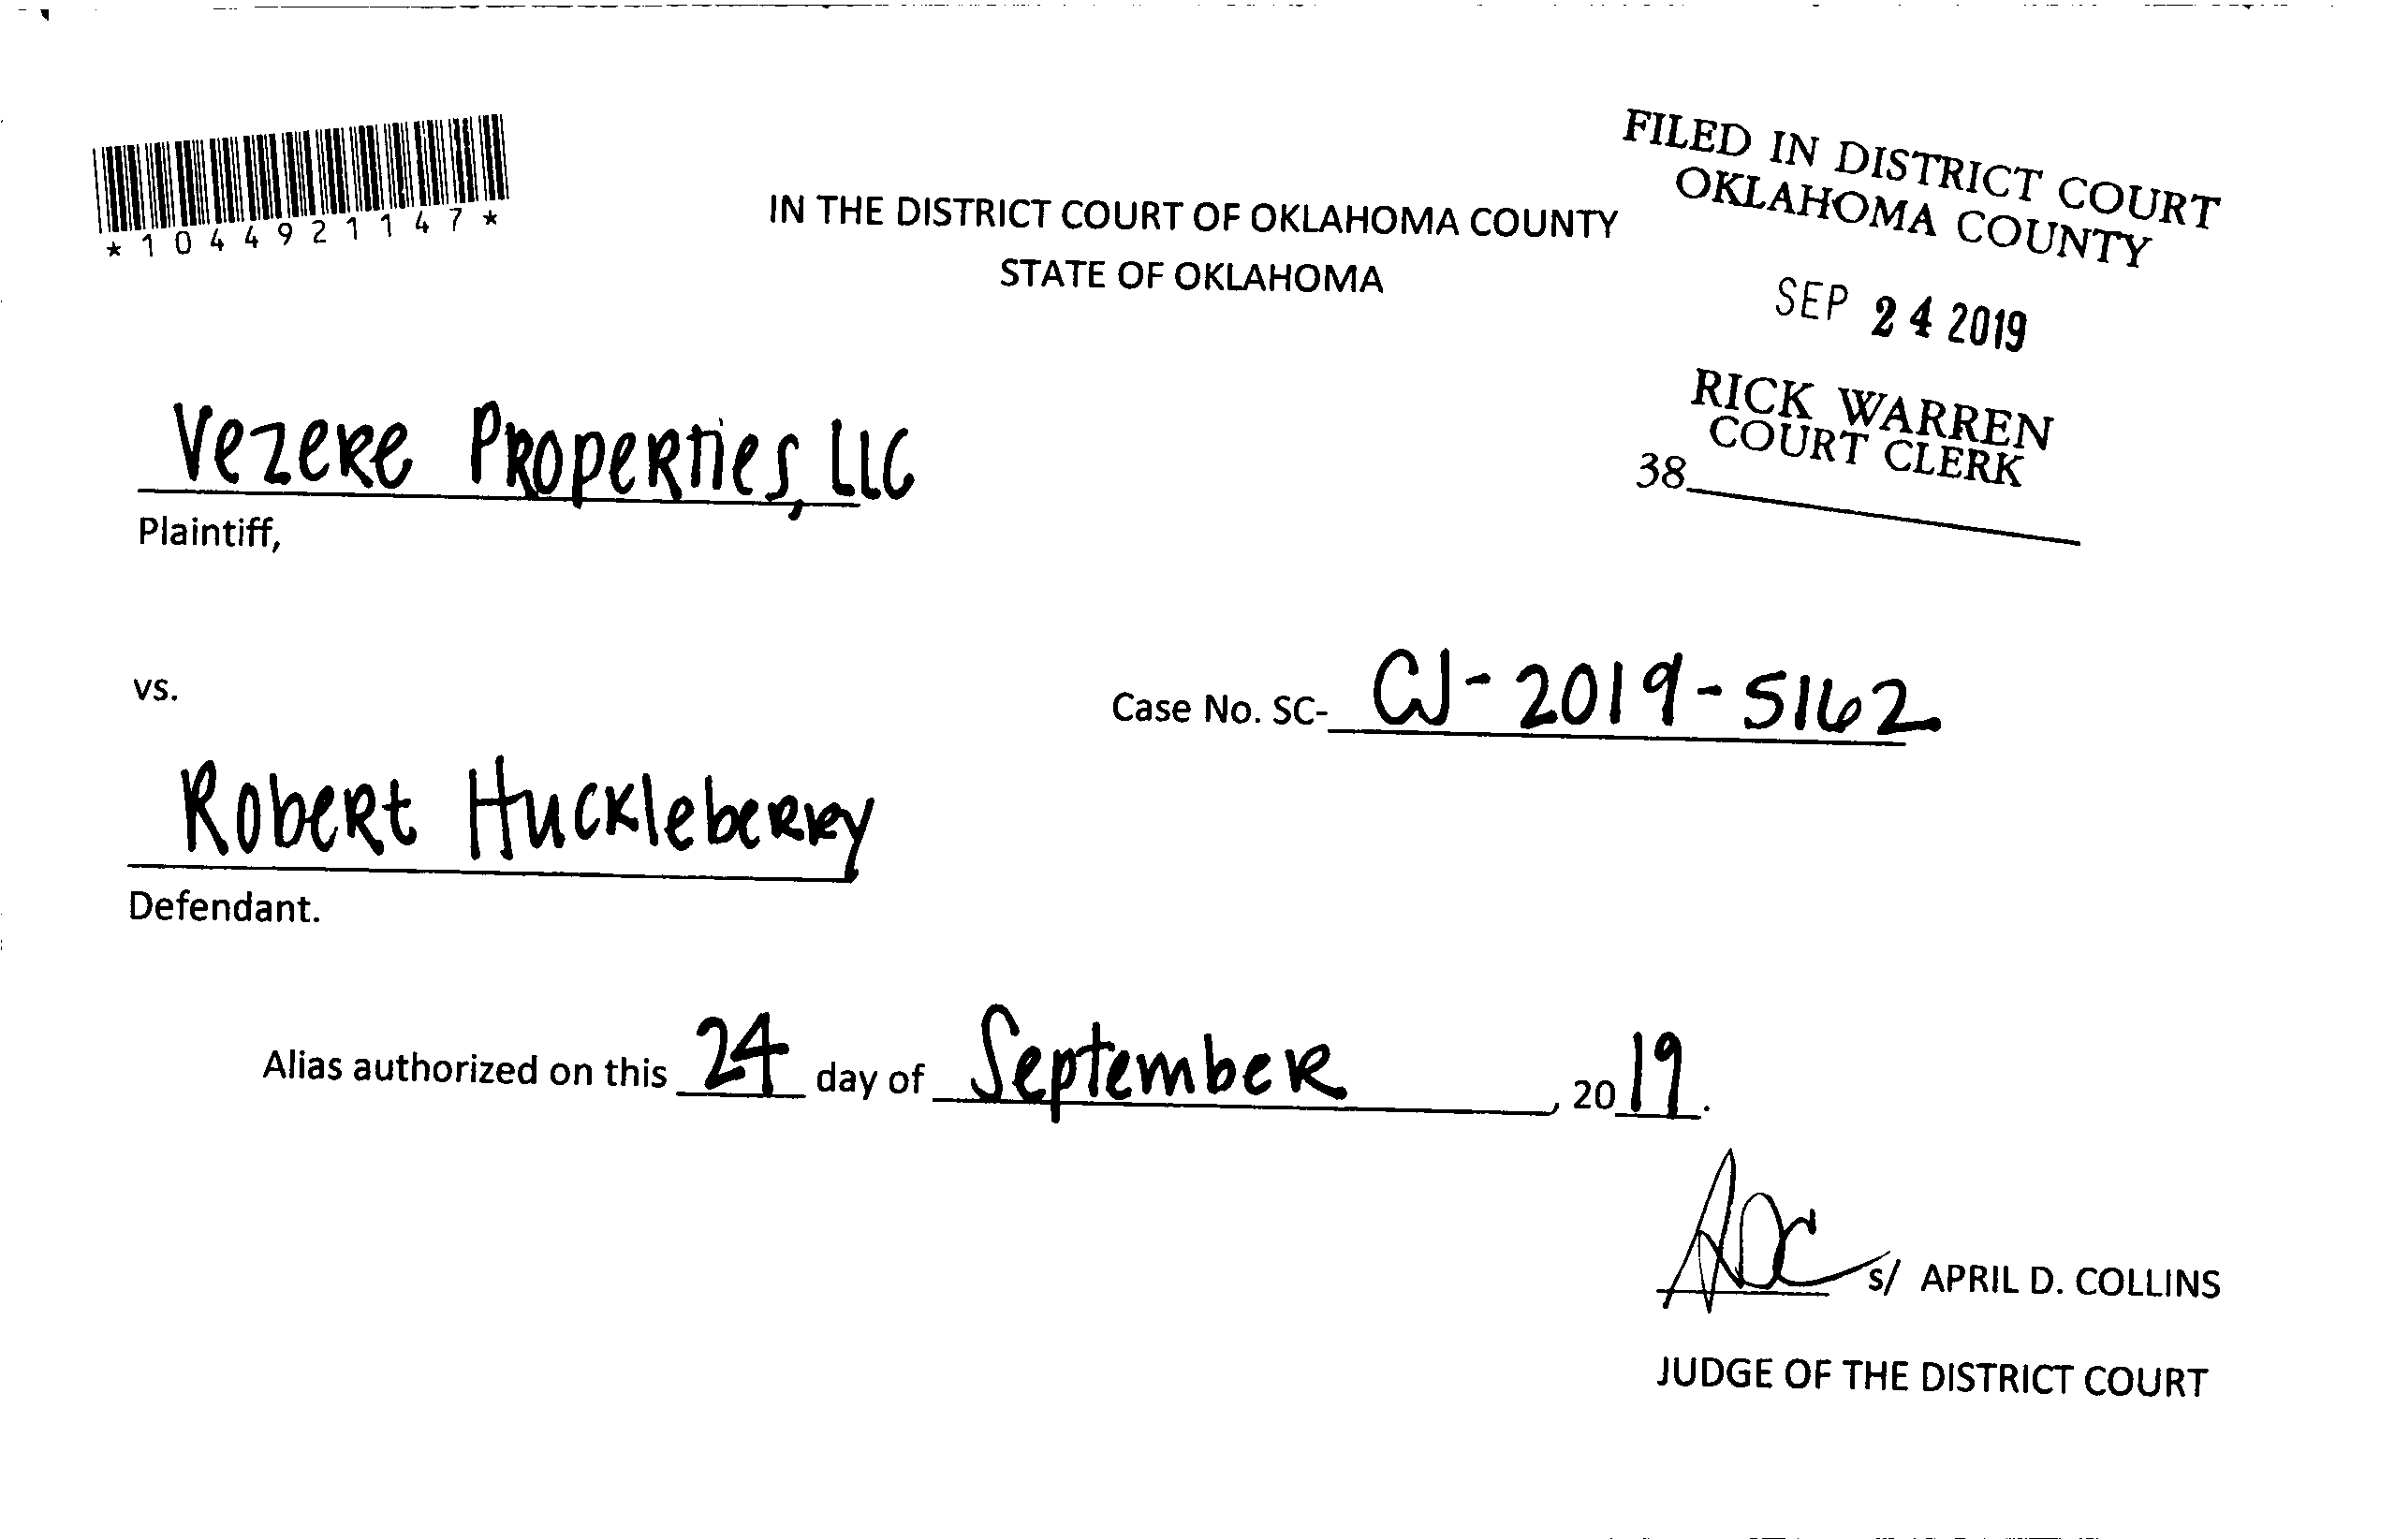 *1044921147*
FILED IN DISTRICT COURT
OKLAHOMA COUNTY
IN THE DISTRICT COURT OF OKLAHOMA COUNTY
STATE OF OKLAHOMA
SEP 24 2019
RICK WARREN
COURT CLERK
38
Vezere Properties, LLC
Plaintiff,
vs.
Case No. SC- CJ-2019-5162
Robert Huckleberry
Defendant.
Alias authorized on this 24 day of September, 2019.
ADC s/ APRIL D. COLLINS
JUDGE OF THE DISTRICT COURT